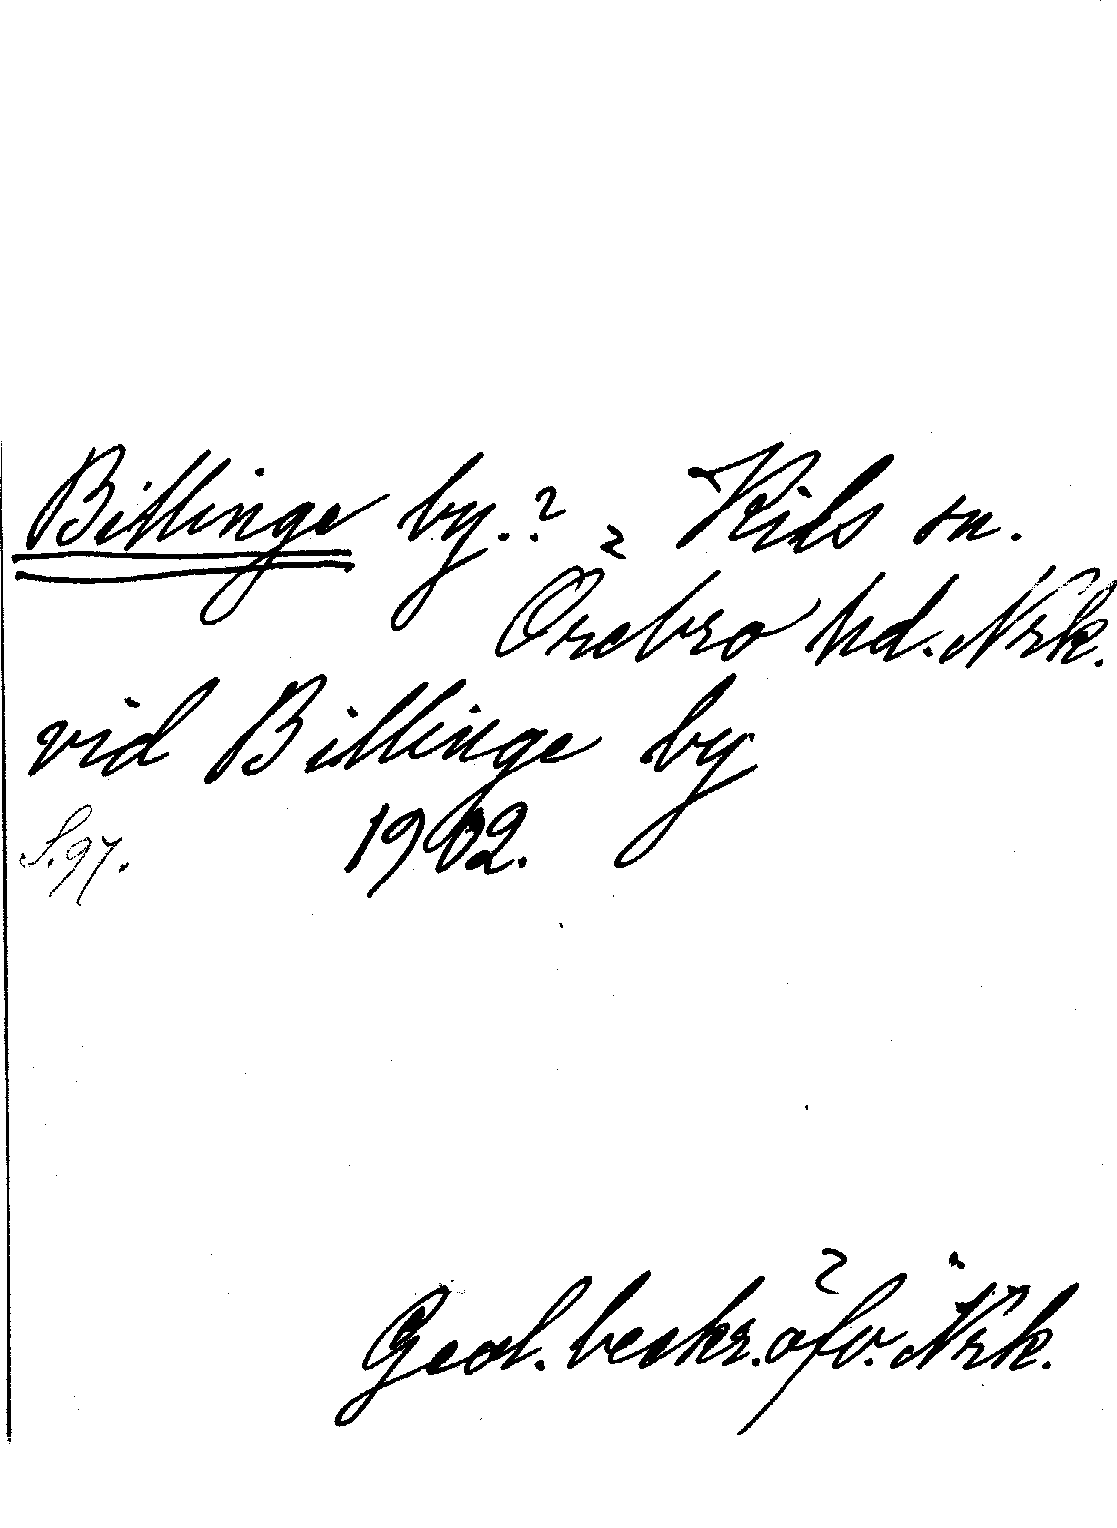 Billinge by.? Kils sn.
Örebro hd. Nrk.
vid Billinge by
S. 97. 1902.
Geol. beskr. öfv. Nrk.